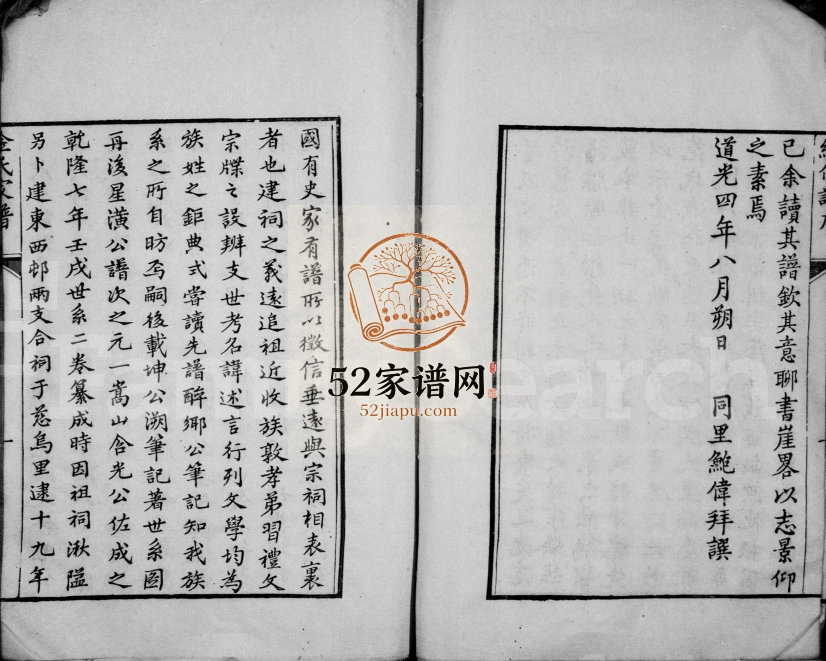 已余讀其譜欽其意聊書崖畧以志景仰
之素焉
道光四年八月朔日 同里鮑偉拜譔
國有史家有譜所以徵信垂遠與宗祠相表裏
者也建祠之義遠追祖近收族敦孝弟習禮文
宗牒之設辨支世考名諱述言行列文學均為
族姓之鉅典式嘗讀先譜醉鄉公筆記知我族
系之所自昉丙嗣後載坤公溯筆記著世系圖
再後星潢公譜次之元一嵩山含光公佐成之
乾隆七年壬戌世系二卷纂成時因祖祠湫隘
另卜建東西邨兩支合祠于慈烏里逮十九年
金氏家譜
52家谱网
52jiapu.com